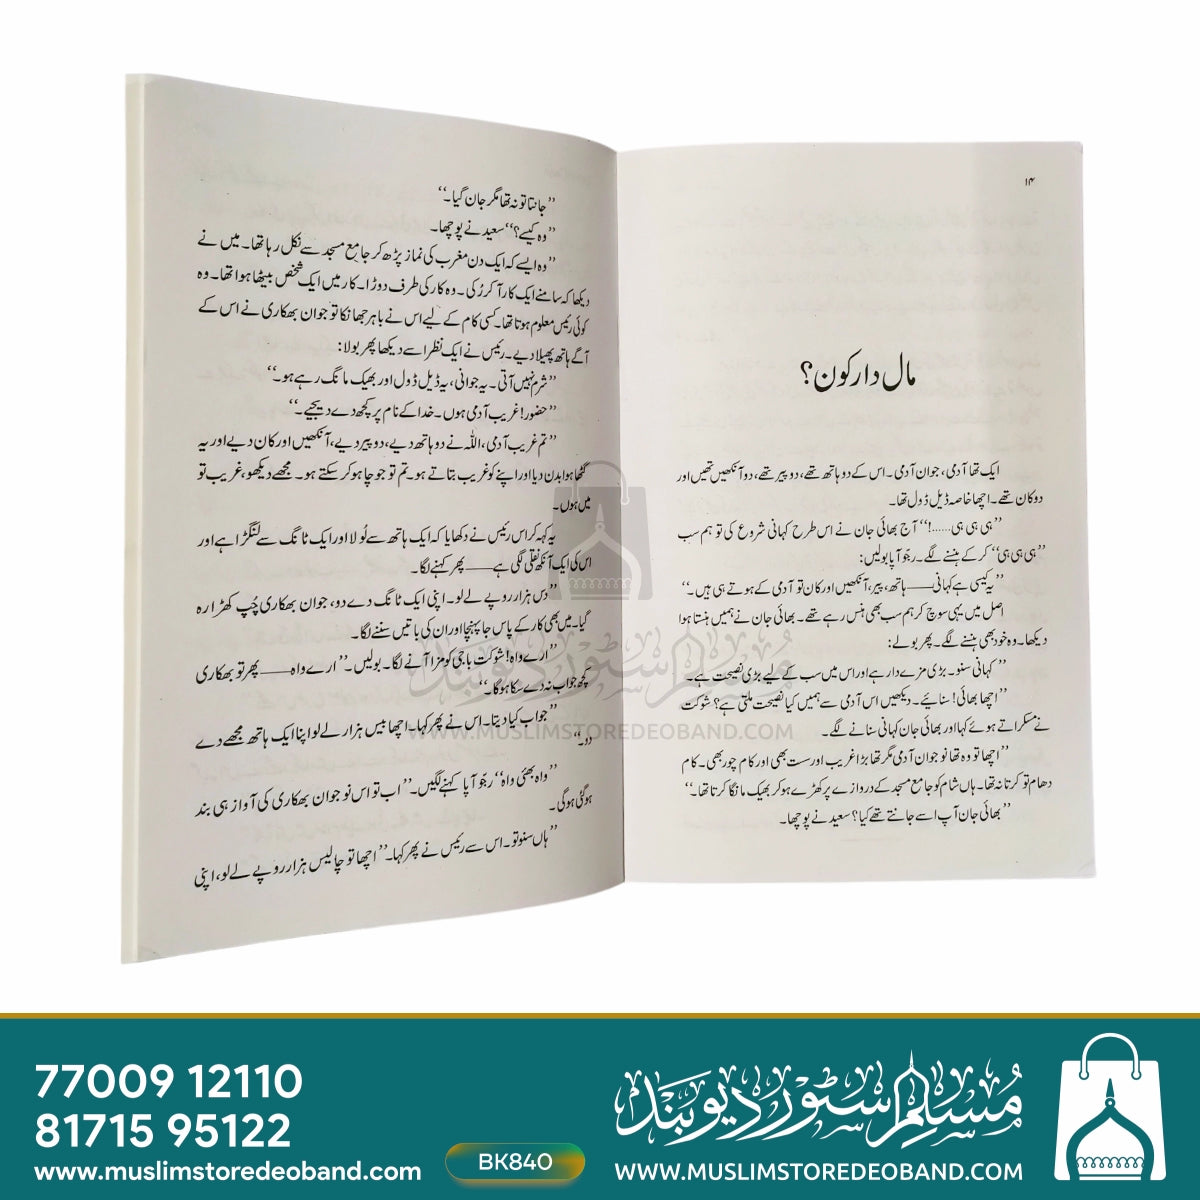 ۱۴
مال دار کون؟
ایک تھا آدمی، جوان آدمی۔ اس کے دو ہاتھ تھے، دو پیر تھے، دو آنکھیں تھیں اور
دو کان تھے۔ اچھا خاصہ ڈیل ڈول تھا۔
’’ہی ہی ہی......!‘‘ آج بھائی جان نے اس طرح کہانی شروع کی تو ہم سب
’’ہی ہی ہی‘‘ کر کے ہنسنے لگے۔ رجّو آپا بولیں:
’’یہ کیسی ہے کہانی——ہاتھ، پیر، آنکھیں اور کان تو آدمی کے ہوتے ہی ہیں۔‘‘
اصل میں یہی سوچ کر ہم سب بھی ہنس رہے تھے۔ بھائی جان نے ہمیں ہنستا ہوا
دیکھا۔ وہ خود بھی ہنسنے لگے۔ پھر بولے:
’’کہانی سنو۔ بڑی مزے دار ہے اور اس میں سب کے لیے بڑی نصیحت ہے۔
’’اچھا بھائی! سنائیے۔ دیکھیں اس آدمی سے ہمیں کیا نصیحت ملتی ہے؟ شوکت
نے مسکراتے ہوئے کہا اور بھائی جان کہانی سنانے لگے۔
’’اچھا تو وہ تھا نو جوان آدمی مگر تھا بڑا غریب اور ست بھی اور کام چور بھی۔ کام
دھام تو کرتا نہ تھا۔ ہاں شام کو جامع مسجد کے دروازے پر کھڑے ہو کر بھیک مانگا کرتا تھا۔‘‘
’’بھائی جان آپ اسے جانتے تھے کیا؟ سعید نے پوچھا۔
’’جانتا تو نہ تھا مگر جان گیا۔‘‘
’’وہ کیسے؟‘‘ سعید نے پوچھا۔
’’وہ ایسے کہ ایک دن مغرب کی نماز پڑھ کر جامع مسجد سے نکل رہا تھا۔ میں نے
دیکھا کہ سامنے ایک کار آ کر رُکی۔ وہ کار کی طرف دوڑا۔ کار میں ایک شخص بیٹھا ہوا تھا۔ وہ
کوئی رئیس معلوم ہوتا تھا۔ کسی کام کے لیے اس نے باہر جھانکا تو جوان بھکاری نے اس کے
آگے ہاتھ پھیلا دیے۔ رئیس نے ایک نظر اسے دیکھا پھر بولا:
’’شرم نہیں آتی۔ یہ جوانی، یہ ڈیل ڈول اور بھیک مانگ رہے ہو۔‘‘
’’حضور! غریب آدمی ہوں۔ خدا کے نام پر کچھ دے دیجیے۔‘‘
’’تم غریب آدمی، اللہ نے دو ہاتھ دیے، دو پیر دیے، آنکھیں اور کان دیے اور یہ
گٹھا ہوا بدن دیا اور اپنے کو غریب بتاتے ہو۔ تم تو جو چاہو کر سکتے ہو۔ مجھے دیکھو، غریب تو
میں ہوں۔
یہ کہہ کر اس رئیس نے دکھایا کہ ایک ہاتھ سے لُولا اور ایک ٹانگ سے لنگڑا ہے اور
اس کی ایک آنکھ نقلی لگی ہے——پھر کہنے لگا۔
’’دس ہزار روپے لے لو۔ اپنی ایک ٹانگ دے دو، جوان بھکاری چُپ کھڑا رہ
گیا۔ میں بھی کار کے پاس جا پہنچا اور ان کی باتیں سننے لگا۔
’’ارے واہ! شوکت باجی کو مزا آنے لگا۔ بولیں۔’’ارے واہ——پھر تو بھکاری
کچھ جواب نہ دے سکا ہوگا۔‘‘
’’جواب کیا دیتا۔ اس نے پھر کہا۔ اچھا بیس ہزار لے لو اپنا ایک ہاتھ مجھے دے
دو۔‘‘
’’واہ بھئی واہ‘‘ رجّو آپا کہنے لگیں۔’’ اب تو اس نو جوان بھکاری کی آواز ہی بند
ہو گئی ہوگی۔
’’ہاں سنو تو۔ اس سے رئیس نے پھر کہا۔’’ اچھا تو چالیس ہزار روپے لے لو، اپنی
مسلم سٹور دیوبند
WWW.MUSLIMSTOREDEOBAND.COM
77009 12110
81715 95122
www.muslimstoredeoband.com
BK840
مسلم سٹور دیوبند
WWW.MUSLIMSTOREDEOBAND.COM